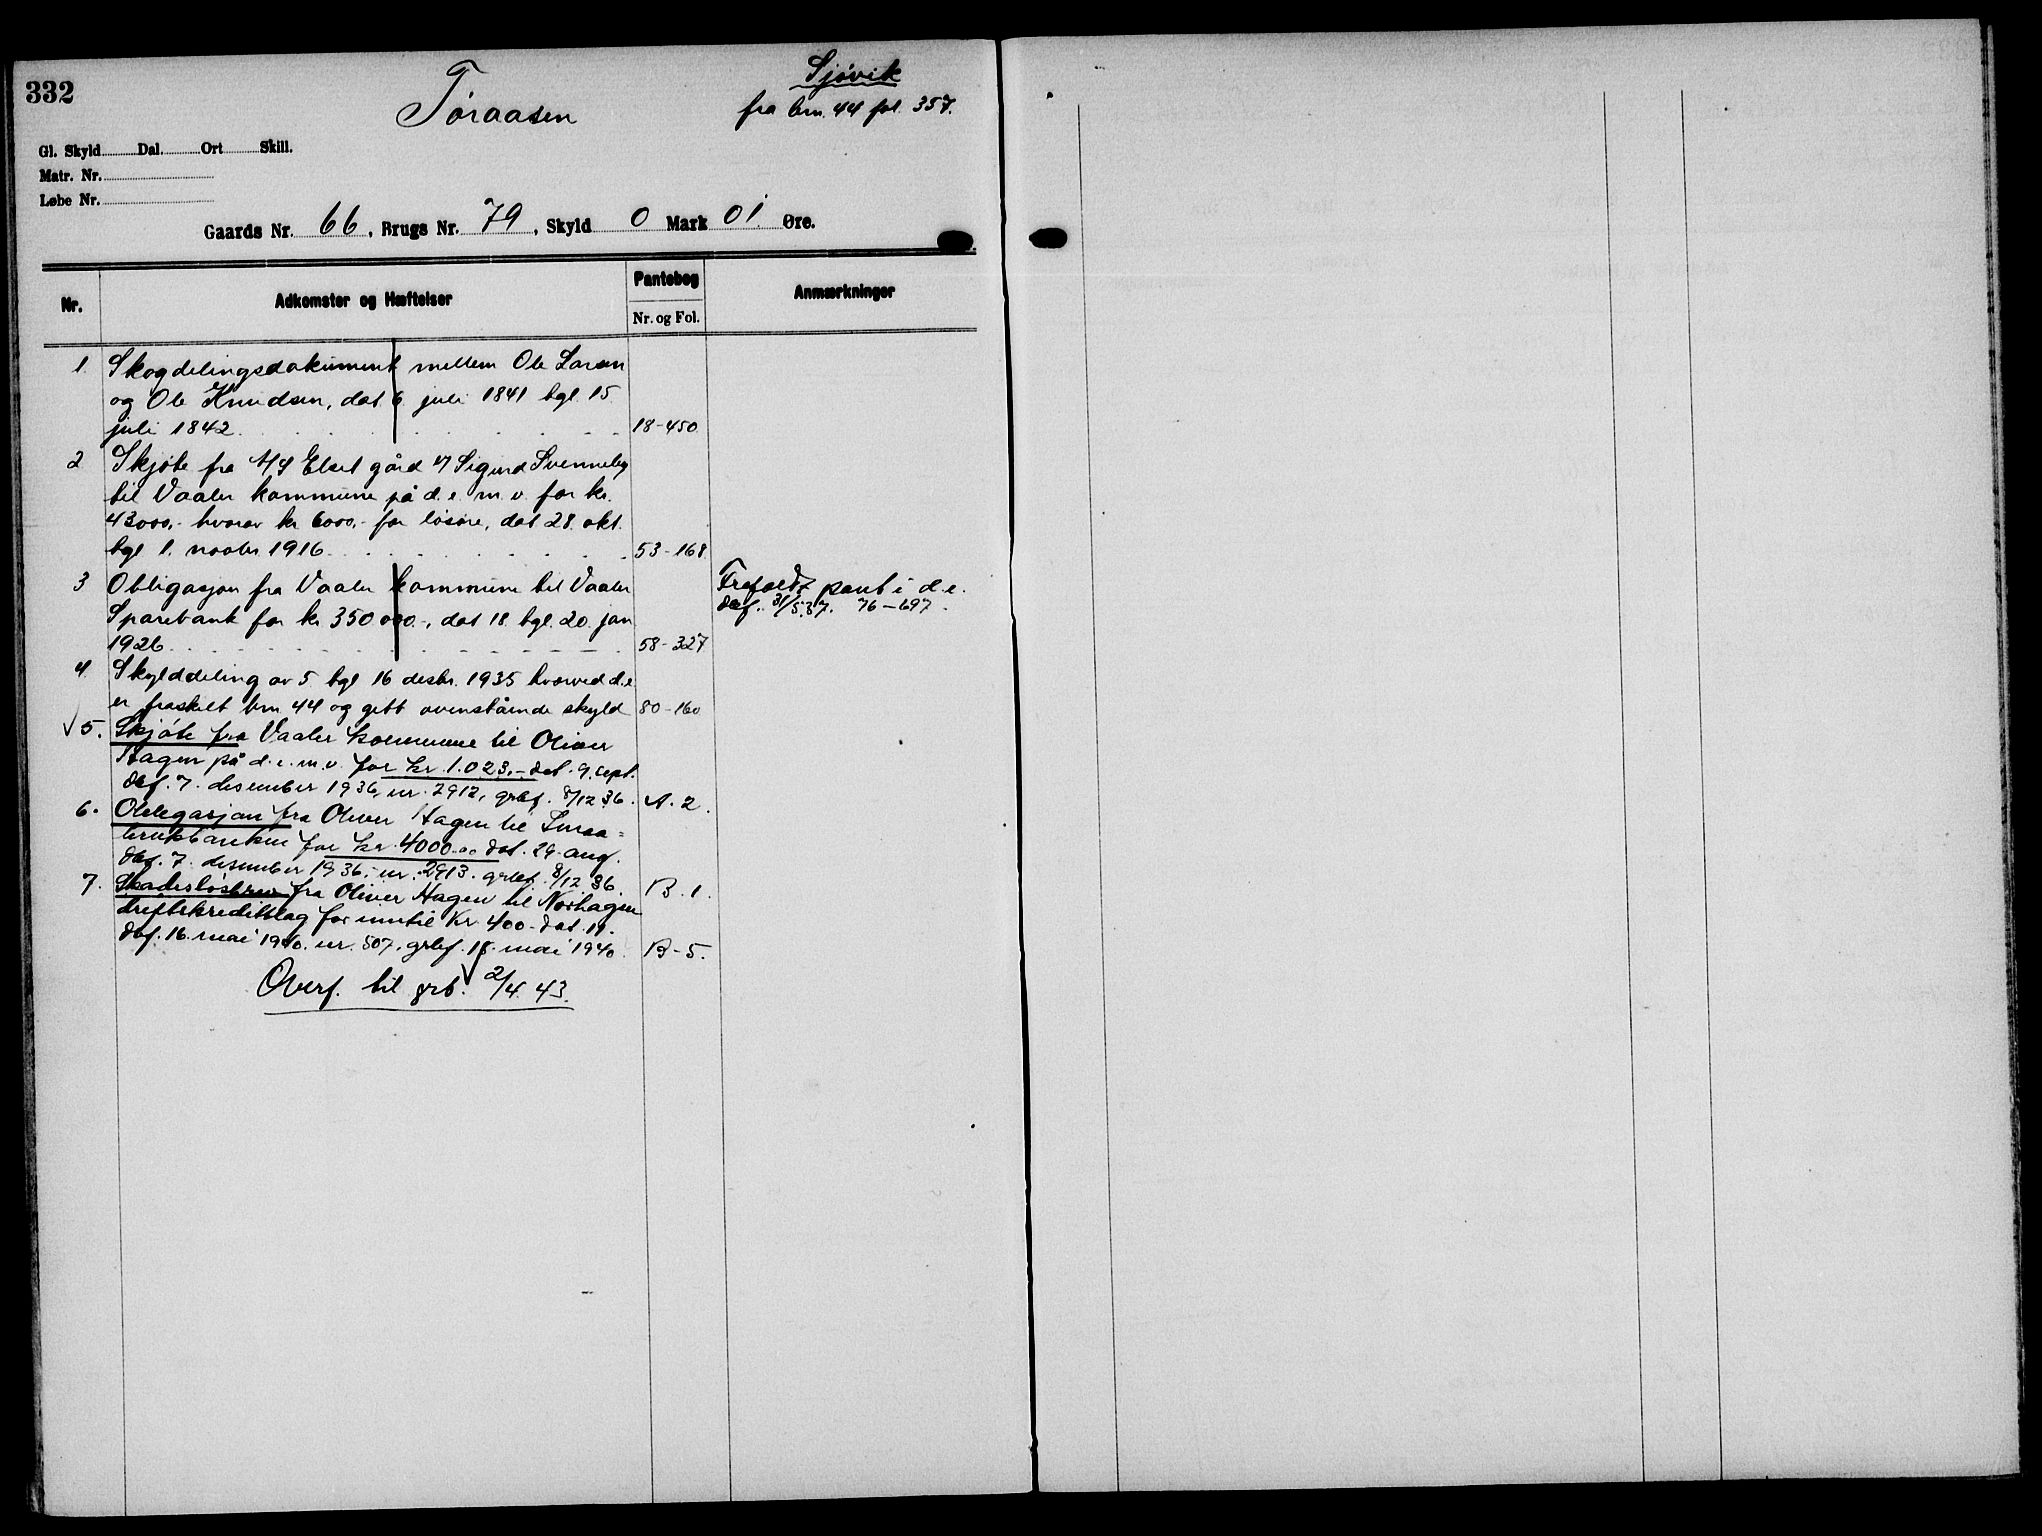 332
Tøraasen
Sjøvik
fra brn. 44 fol. 357.
Gl. Skyld Dal. Ort Skill.
Matr. Nr.
Løbe Nr.
Gaards Nr. 66, Brugs Nr. 79, Skyld 0 Mark 01. Øre.
Nr.
Adkomster og Hæftelser
Pantebog
Nr. og Fol.
Anmærkninger
1. Skogdelingsdokument mellem Ole Larsen
og Ole Knudsen, dat. 6 juli 1841 tgl. 15
juli 1842. 18-450
2 Skjøte fra A/S Elset gård v/ Sigurd Svenneby
til Vaaler kommune på d. e. m. v. for kr.
43000,- hvorav kr 6000,- for løsøre, dat 28. okt.
tgl 1. novbr 1916 53-168
3 Obligasjon fra Vaaler kommune til Vaaler
Sparebank for kr 350 000.-, dat 18. tgl. 20. jan
1926 58-327
Frafaldt pant i d. e.
dbf. 31/5.37. 76-697.
4. Skylddeling av 5 tgl 16 desbr. 1935 hvorved d. e
er fraskilt brn 44 og gitt ovenstående skyld 80-160
√ 5. Skjøte fra Vaaler kommune til Oliver
Hagen på d. e. m. v. for kr. 1.023,- dat. 9. sept.
dbf. 7. desember 1936, nr. 2912, grbf. 8/12 36. A. 2.
6. Obligasjon fra Oliver Hagen til Smaa=
brukbanken for kr. 4000.00 dat. 29. aug.
dbf. 7. desember 1936, nr. 2913. grbf. 8/12 36. B. 1.
7. Skadesløsbrev fra Oliver Hagen til Norhagen
driftskredittlag for inntil kr 400.- dat. 19.
dbf. 16. mai 1940. nr. 507. grbf. 18. mai 1940. B-5.
Overf. til grb. 2/4 43.